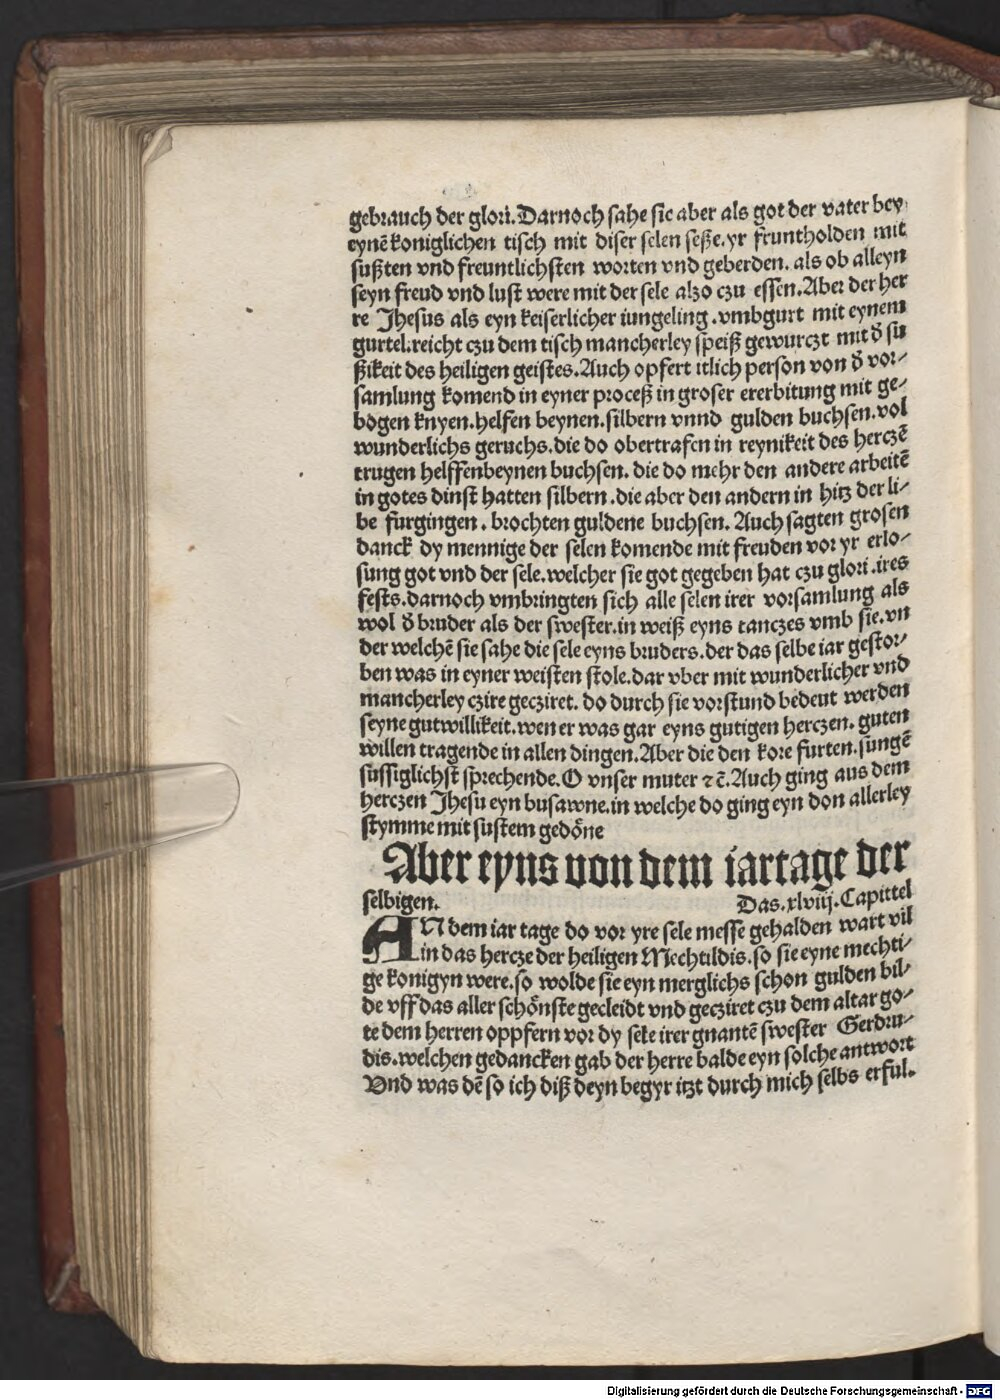 gebrauch der glori. Darnoch sahe sie aber als got der vater bey
eynē koniglichen tisch mit diser selen seße. yr fruntholden mit
sußten vnd freuntlichsten worten vnd geberden. als ob alleyn
seyn freud vnd lust were mit der sele alzo czu essen. Aber der her
re Jhesus als eyn keiserlicher iungeling. vmbgurt mit eynem
gurtel. reicht czu dem tisch mancherley speiß gewurczt mit d̕ su
ßikeit des heiligen geistes. Auch opfert itlich person von d̕ vor⸗
samlung komend in eyner proceß in groser ererbitung mit ge⸗
bogen knyen. helfen beynen. silbern vnnd gulden buchsen. vol
wunderlichs geruchs. die do obertrafen in reynikeit des herczē
trugen helffenbeynen buchsen. die do mehr den andere arbeitē
in gotes dinst hatten silbern. die aber den andern in hitz der li⸗
be furgingen. brochten guldene buchsen. Auch sagten grosen
danck dy mennige der selen komende mit freuden vor yr erlo⸗
sung got vnd der sele. welcher sie got gegeben hat czu glori. ires
fests. darnoch vmbringten sich alle selen irer vorsamlung als
wol d̕ bruder als der swester. in weiß eyns tanczes vmb sie. vn
der welchē sie sahe die sele eyns bruders. der das selbe iar gestor⸗
ben was in eyner weisten stole. dar vber mit wunderlicher vnd
mancherley czire gecziret. do durch sie vorstund bedeut werden
seyne gutwillikeit. wen er was gar eyns gutigen herczen. guten
willen tragende in allen dingen. Aber die den kore furten. sungē
sussiglichst sprechende. O vnser muter ⁊ c̄. Auch ging aus dem
herczen Jhesu eyn busawne. in welche do ging eyn don allerley
stymme mit sustem gedo̊ne
Aber eyns von dem iartage der
selbigen. Das. xlviij. Capittel
AN dem iar tage do vor yre sele messe gehalden wart vil
in das hercze der heiligen Mechtildis. so sie eyne mechti⸗
ge konigyn were. so wolde sie eyn merglichs schon gulden bil⸗
de vff das aller scho̊nste gecleidt vnd gecziret czu dem altar go⸗
te dem herren oppfern vor dy sele irer gnantē swester Gerdru⸗
dis. welchen gedancken gab der herre balde eyn solche antwort
Vnd was dē so ich diß deyn begyr itzt durch mich selbs erful.
Digitalisierung gefördert durch die Deutsche Forschungsgemeinschaft · DFG